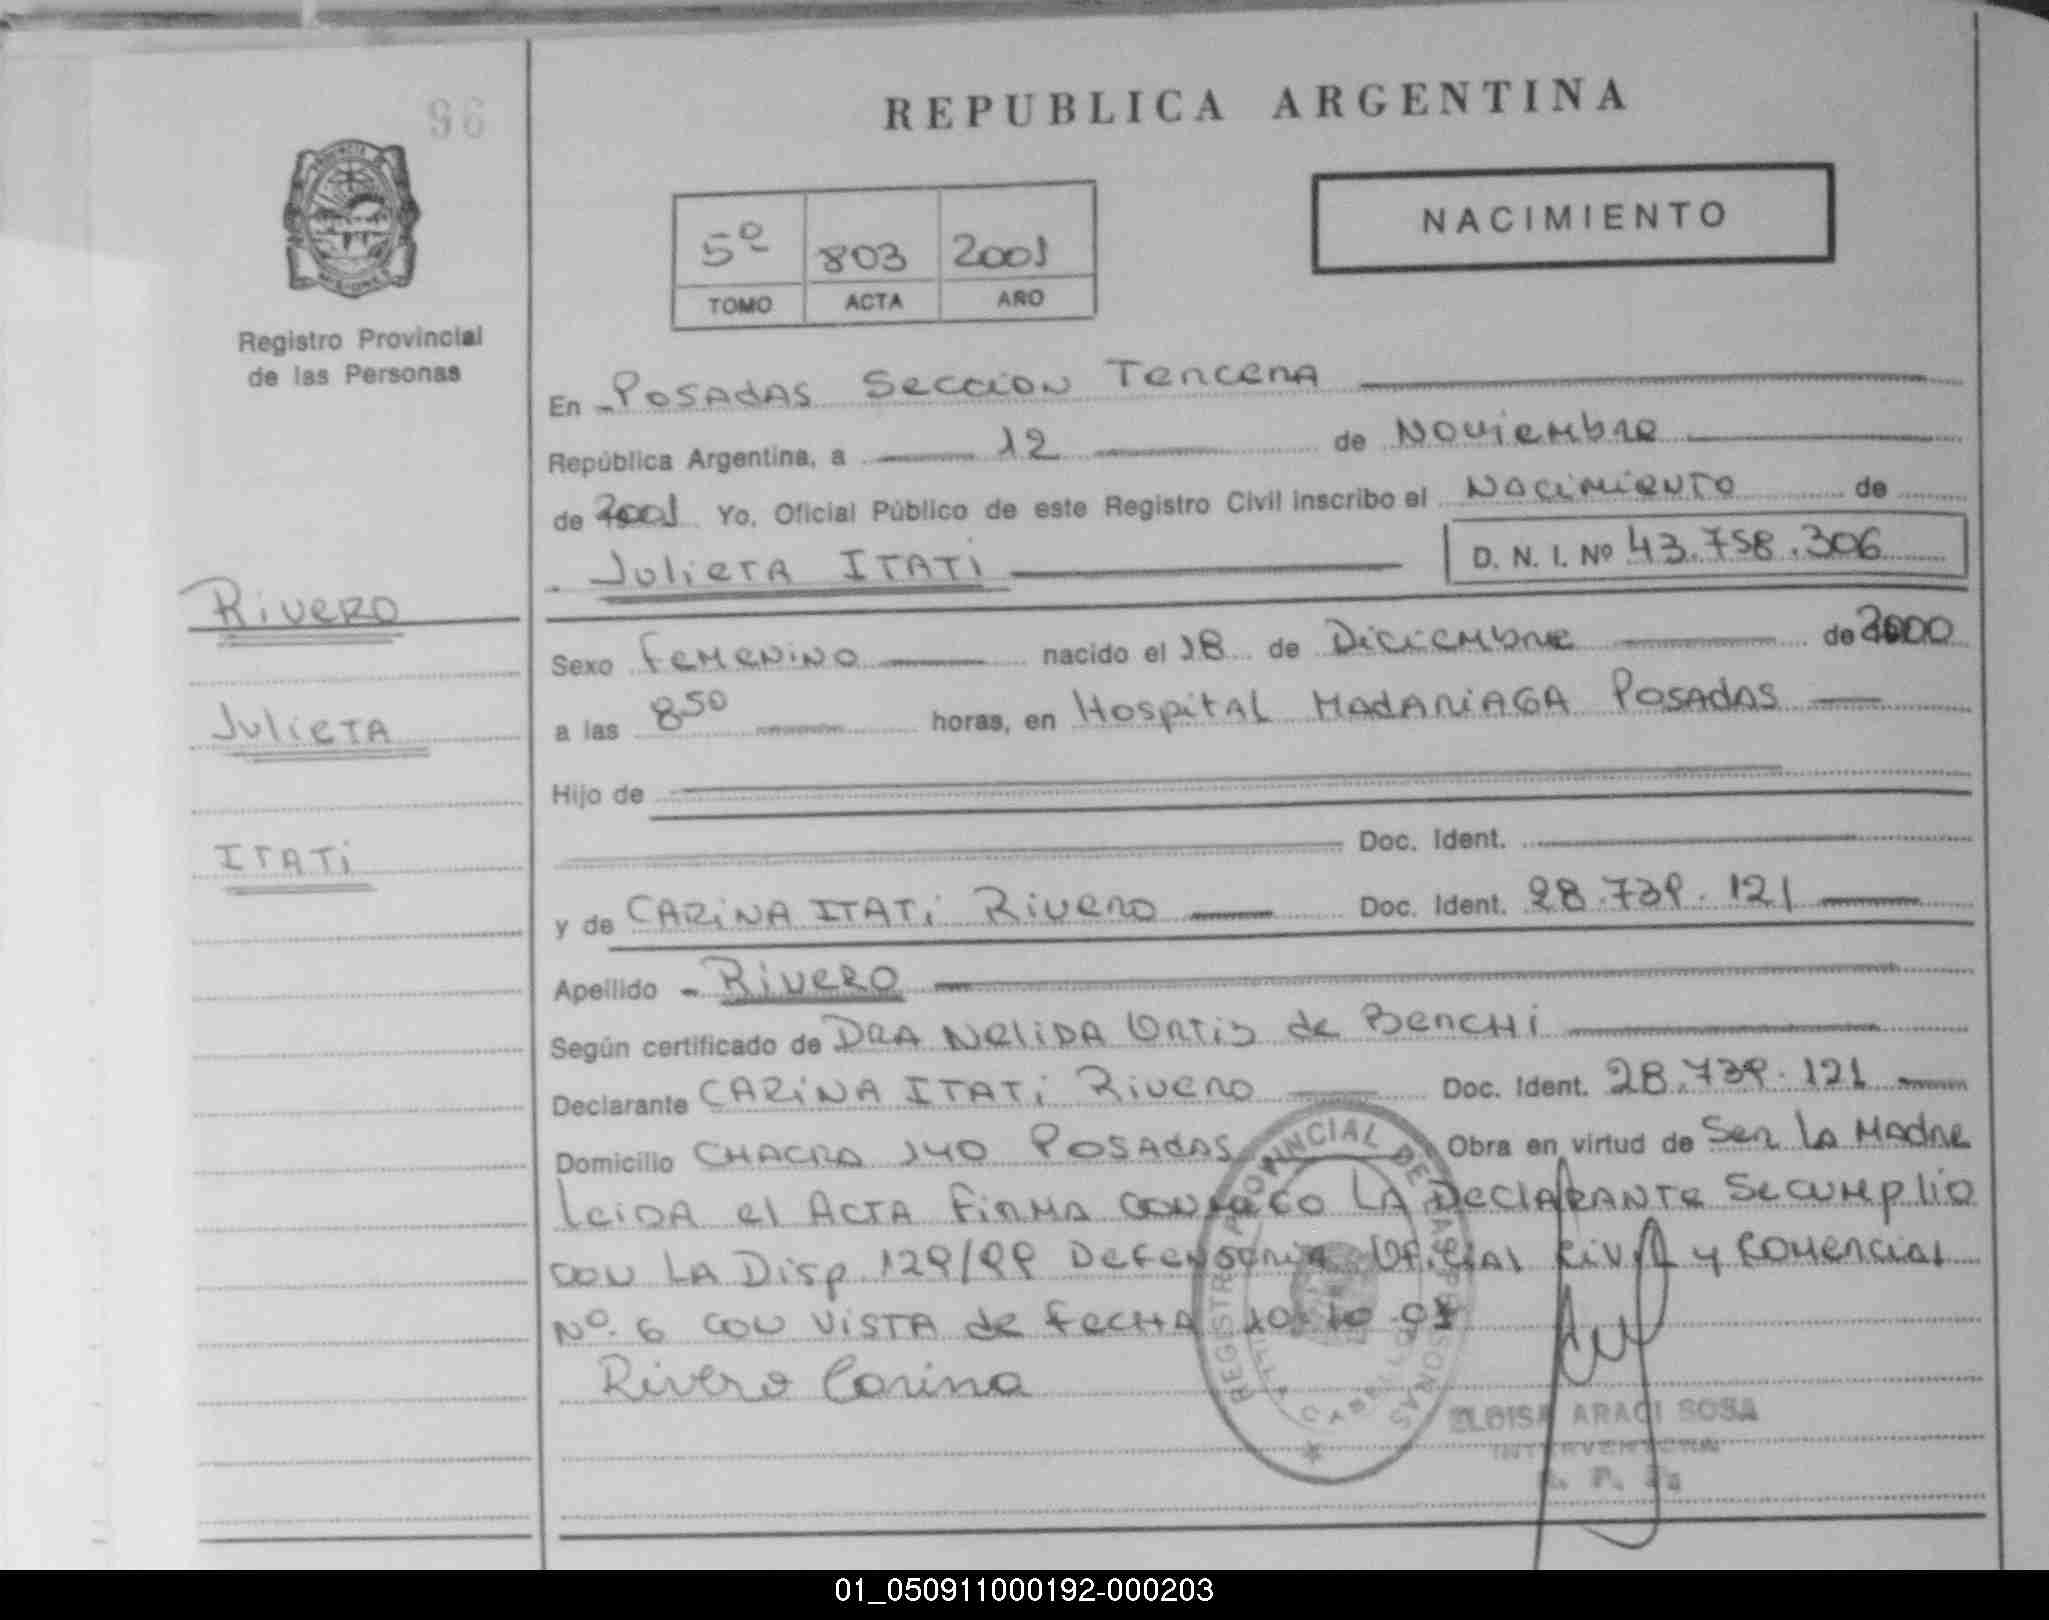 96
REPUBLICA ARGENTINA
NACIMIENTO
5º 803 2001
TOMO ACTA AÑO
Registro Provincial
de las Personas
En Posadas Seccion Tercera
República Argentina, a 12 de Noviembre
de 2001 Yo, Oficial Público de este Registro Civil inscribo el Nacimiento de
Julieta Itati D. N. I. Nº 43.758.306
Rivero
Julieta
Itati
Sexo Femenino nacido el 18 de Diciembre de 2000
a las 8 50 horas, en Hospital Madariaga Posadas
Hijo de
Doc. Ident.
y de Carina Itati Rivero Doc. Ident. 28.739.121
Apellido Rivero
Según certificado de Dra Nelida Ortiz de Berchi
Declarante Carina Itati Rivero Doc. Ident. 28.739.121
Domicilio Chacra 140 Posadas Obra en virtud de Ser la Madre
Leida el Acta Firma conmigo la Declarante Se cumplio
con la Disp. 129/99 Defensoria Oficial Civil y Comercial
Nº. 6 con vista de fecha 10.10.01
Rivero Carina
REGISTRO PROVINCIAL DE LAS PERSONAS
ELOISA ARACI SOSA
INTERVENTORA
R. P. P.
01_050911000192-000203